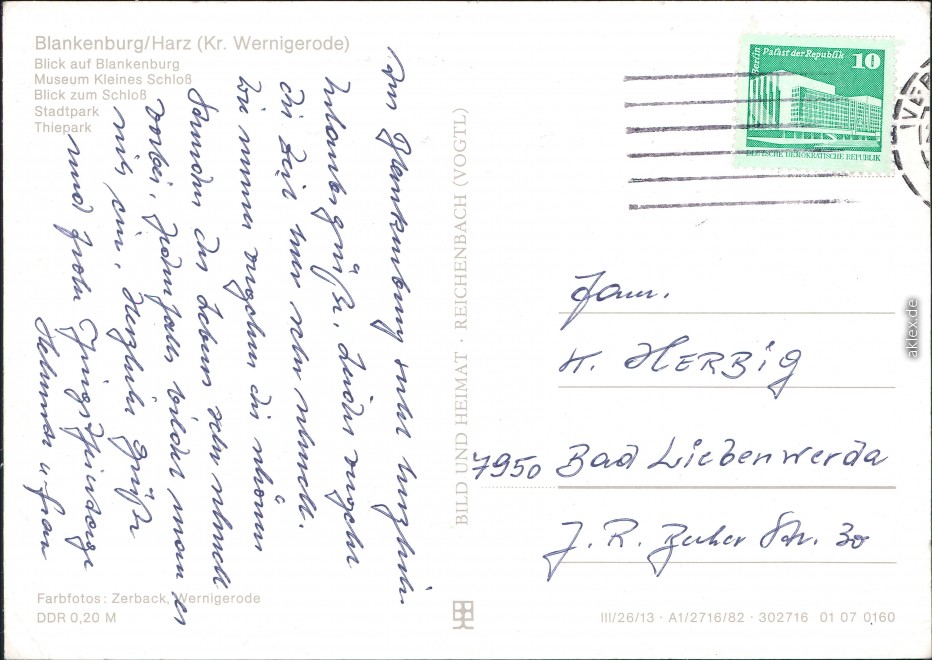 Blankenburg/Harz (Kr. Wernigerode)
Blick auf Blankenburg
Museum Kleines Schloß
Blick zum Schloß
Stadtpark
Thiepark
Aus Blankenburg recht herzliche
Urlaubsgrüße. Leider vergeht
die Zeit hier sehr schnell.
Wie immer vergehen die schönen
Stunden des Lebens sehr schnell
vorbei, jedenfalls bildet man es
sich ein. Herzliche Grüße
und frohe Pfingstfeiertage
Helmar u. Frau
Farbfotos: Zerback, Wernigerode
DDR 0,20 M
BILD UND HEIMAT · REICHENBACH (VOGTL)
Berlin Palast der Republik 10
DEUTSCHE DEMOKRATISCHE REPUBLIK
Fam.
K. HERBIG
7950 Bad Liebenwerda
J. R. Becher Str. 30
III/26/13 · A1/2716/82 · 302716 01 07 0160
aklex.de